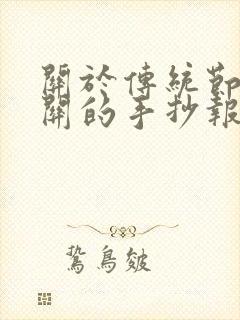 關於傳統節
開的手抄報
鷙鳥皴